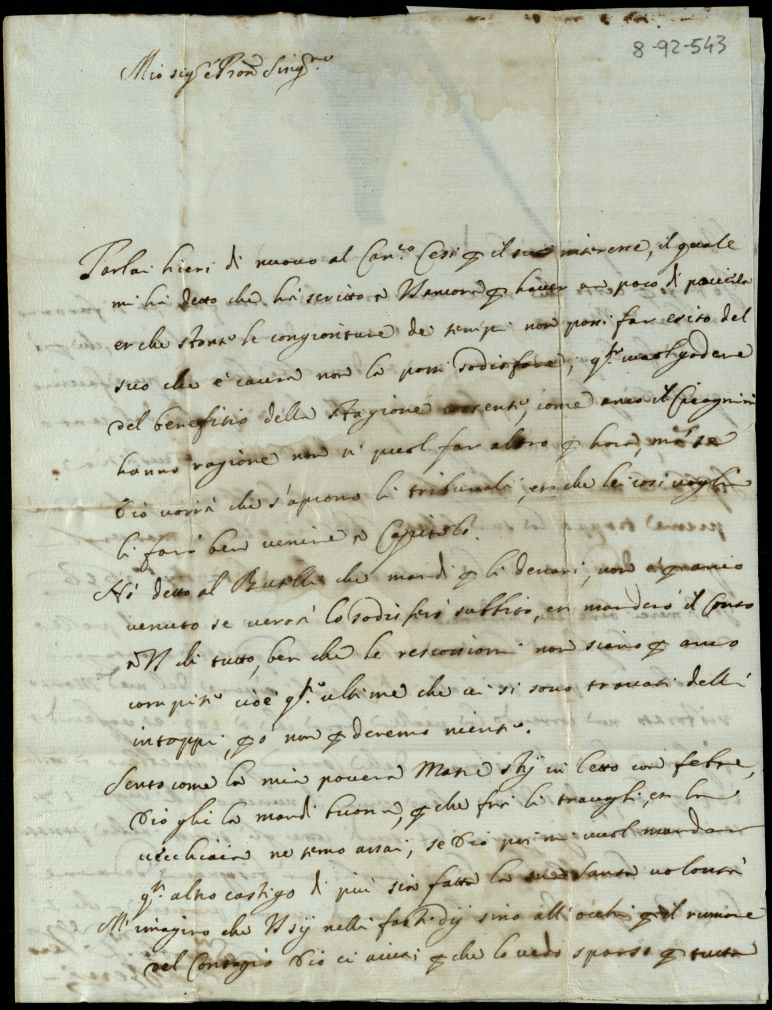 8-92-543
Mio sigre Pron Singmo
Parlai hieri di nuovo al Canco Cesi p il suo interesse, il quale
mi hà detto che hà scritto à V ancora p haver un poco di
et che stante le congionture de tempi non possi far esito del
suo che è causa non la possi sodisfare, qto vuol godere
del benefitio della stagione come anco il Cicognini
hanno ragione non vi puol far altro p hora, ma se
Dio vorrà che s'aprono li tribunali, et che lei cosi voglia
li farò ben venire à Capitolo.
Hò detto al che mandi p li denari, non è p anco
venuto se verrà lo sodisferò subbito, et manderò il Conto
à V di tutto, ben che le rescossioni non siano p anco
compite cioè qte ultime che vi si sono trovati delli
intoppi, pò non pderemo niente.
Sento come la mia povera Matre stij in letto con febre,
Dio ghi la mandi buona, p che frà li travagli, et la
vecchiaia ne temo assai, se Dio poi mi vuol mandar
qto altro castigo di più sia fatta la sua santa volontà
M'imagino che V sij nelli fastidij sino alli occhi p il rumore
del Contagio Dio ci aiuti p che lo vedo sparso p tutto